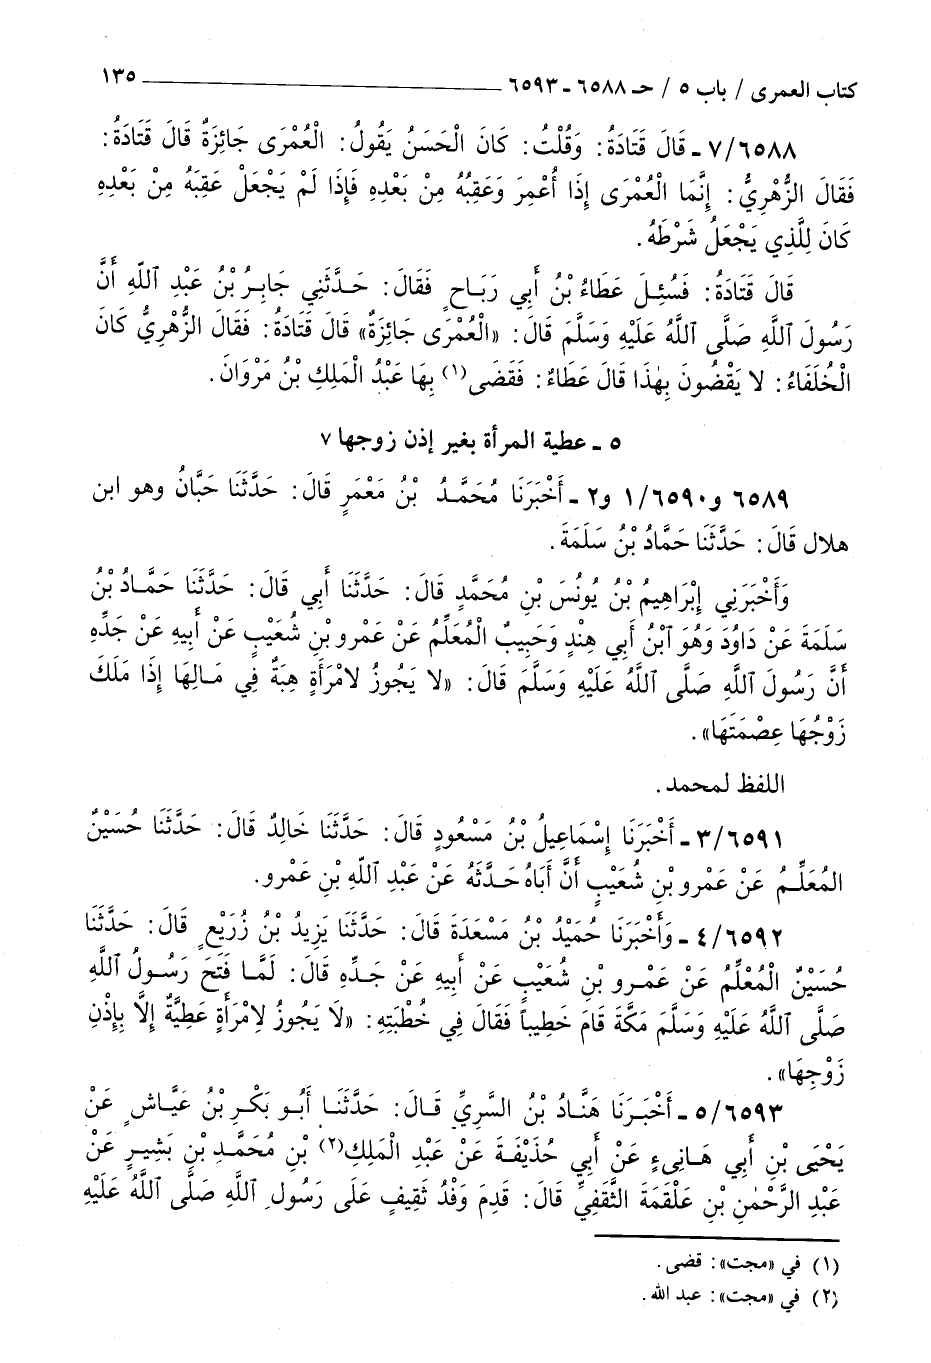 كتاب العمرى / باب ٥ / حـ ٦٥٨٨ ـ ٦٥٩٣ ١٣٥
٧/٦٥٨٨ ـ قَالَ قَتَادَةُ: وَقُلْتُ: كَانَ الْحَسَنُ يَقُولُ: الْعُمْرَى جَائِزَةٌ قَالَ قَتَادَةُ:
فَقَالَ الزُّهْرِيُّ: إِنَّمَا الْعُمْرَى إِذَا أُعْمِرَ وَعَقِبُهُ مِنْ بَعْدِهِ فَإِذَا لَمْ يَجْعَلْ عَقِبَهُ مِنْ بَعْدِهِ
كَانَ لِلَّذِي يَجْعَلُ شَرْطَهُ.
قَالَ قَتَادَةُ: فَسُئِلَ عَطَاءُ بْنُ أَبِي رَبَاحٍ فَقَالَ: حَدَّثَنِي جَابِرُ بْنُ عَبْدِ ٱللَّهِ أَنَّ
رَسُولَ ٱللَّهِ صَلَّى ٱللَّهُ عَلَيْهِ وَسَلَّمَ قَالَ: «الْعُمْرَى جَائِزَةٌ» قَالَ قَتَادَةُ: فَقَالَ الزُّهْرِيُّ كَانَ
الْخُلَفَاءُ: لَا يَقْضُونَ بِهٰذَا قَالَ عَطَاءٌ: فَقَضَى(١) بِهَا عَبْدُ الْمَلِكِ بْنُ مَرْوَانَ.
٥ ـ عطية المرأة بغير إذن زوجها ٧
٦٥٨٩ و٦٥٩٠/ ١ و٢ ـ أَخْبَرَنَا مُحَمَّدُ بْنُ مَعْمَرٍ قَالَ: حَدَّثَنَا حَبَّانُ وهو ابن
هلال قَالَ: حَدَّثَنَا حَمَّادُ بْنُ سَلَمَةَ.
وَأَخْبَرَنِي إِبْرَاهِيمُ بْنُ يُونُسَ بْنِ مُحَمَّدٍ قَالَ: حَدَّثَنَا أَبِي قَالَ: حَدَّثَنَا حَمَّادُ بْنُ
سَلَمَةَ عَنْ دَاوُدَ وَهُوَ ٱبْنُ أَبِي هِنْدٍ وَحَبِيبٌ الْمُعَلِّمُ عَنْ عَمْرِو بْنِ شُعَيْبٍ عَنْ أَبِيهِ عَنْ جَدِّهِ
أَنَّ رَسُولَ ٱللَّهِ صَلَّى ٱللَّهُ عَلَيْهِ وَسَلَّمَ قَالَ: «لَا يَجُوزُ لامْرَأَةٍ هِبَةٌ فِي مَالِهَا إِذَا مَلَكَ
زَوْجُهَا عِصْمَتَهَا».
اللفظ لمحمد.
٣/٦٥٩١ ـ أَخْبَرَنَا إِسْمَاعِيلُ بْنُ مَسْعُودٍ قَالَ: حَدَّثَنَا خَالِدٌ قَالَ: حَدَّثَنَا حُسَيْنٌ
المُعَلِّمُ عَنْ عَمْرِو بْنِ شُعَيْبٍ أَنَّ أَبَاهُ حَدَّثَهُ عَنْ عَبْدِ ٱللَّهِ بْنِ عَمْرٍو.
٤/٦٥٩٢ ـ وَأَخْبَرَنَا حُمَيْدُ بْنُ مَسْعَدَةَ قَالَ: حَدَّثَنَا يَزِيدُ بْنُ زُرَيْعٍ قَالَ: حَدَّثَنَا
حُسَيْنٌ الْمُعْلِّمُ عَنْ عَمْرِو بْنِ شُعَيْبٍ عَنْ أَبِيهِ عَنْ جَدِّهِ قَالَ: لَمَّا فَتَحَ رَسُولُ ٱللَّهِ
صَلَّى ٱللَّهُ عَلَيْهِ وَسَلَّمَ مَكَّةَ قَامَ خَطِيباً فَقَالَ فِي خُطْبَتِهِ: «لَا يَجُوزُ لِامْرَأَةٍ عَطِيَّةٌ إِلَّا بِإِذْنِ
زَوْجِهَا».
٥/٦٥٩٣ ـ أَخْبَرَنَا هَنَّادُ بْنُ السَّرِيِّ قَالَ: حَدَّثَنَا أَبُو بَكْرِ بْنُ عَيَّاشٍ عَنْ
يَحْيَى بْنِ أَبِي هَانِىءٍ عَنْ أَبِي حُذَيْفَةَ عَنْ عَبْدِ الْمَلِكِ(٢) بْنِ مُحَمَّدِ بْنِ بَشِيرٍ عَنْ
عَبْدِ الرَّحْمٰنِ بْنِ عَلْقَمَةَ الثَّقَفِيِّ قَالَ: قَدِمَ وَفْدُ ثَقِيفٍ عَلَى رَسُولِ ٱللَّهِ صَلَّى ٱللَّهُ عَلَيْهِ
(١) في «مجت»: قضى.
(٢) في «مجت»: عبد الله.